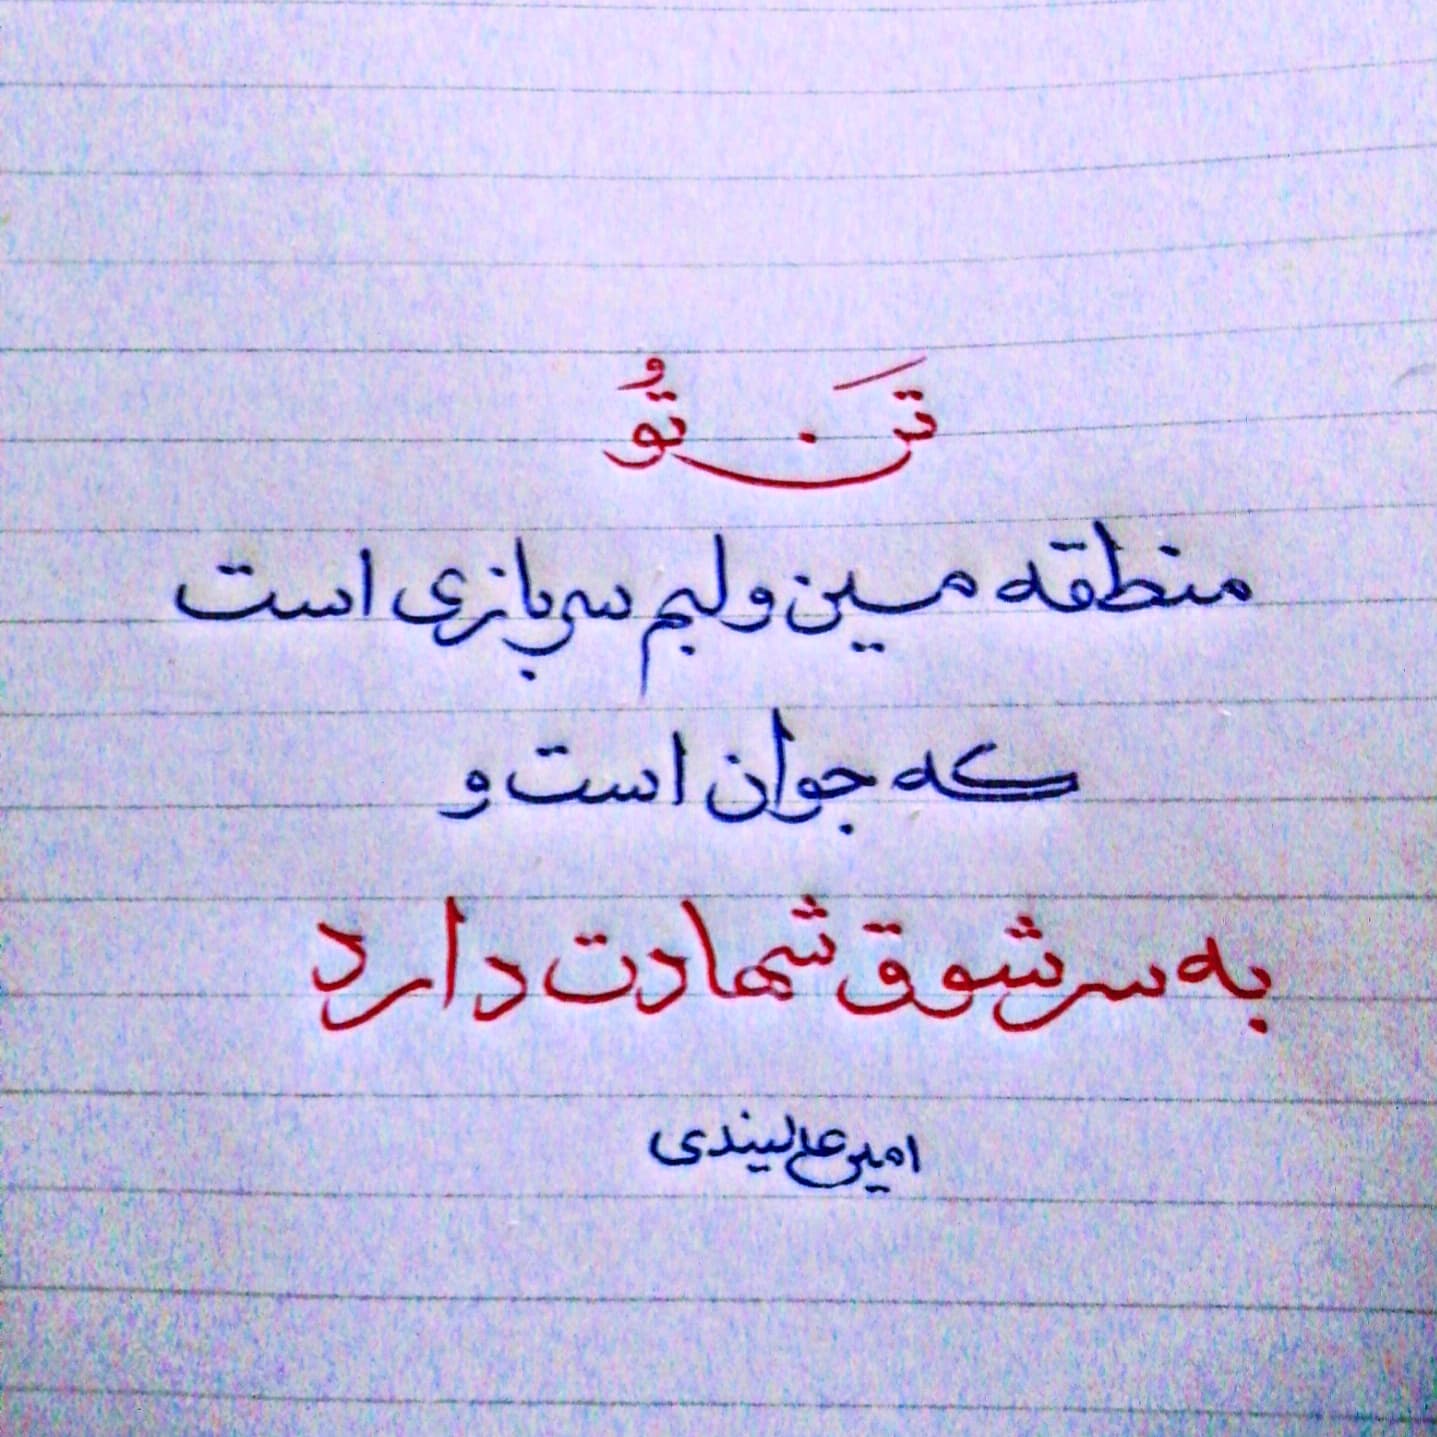 تَن تُو
منطقه مین و لبم سربازی است
که جوان است و
به سر شوق شهادت دارد
امین علیلیندی